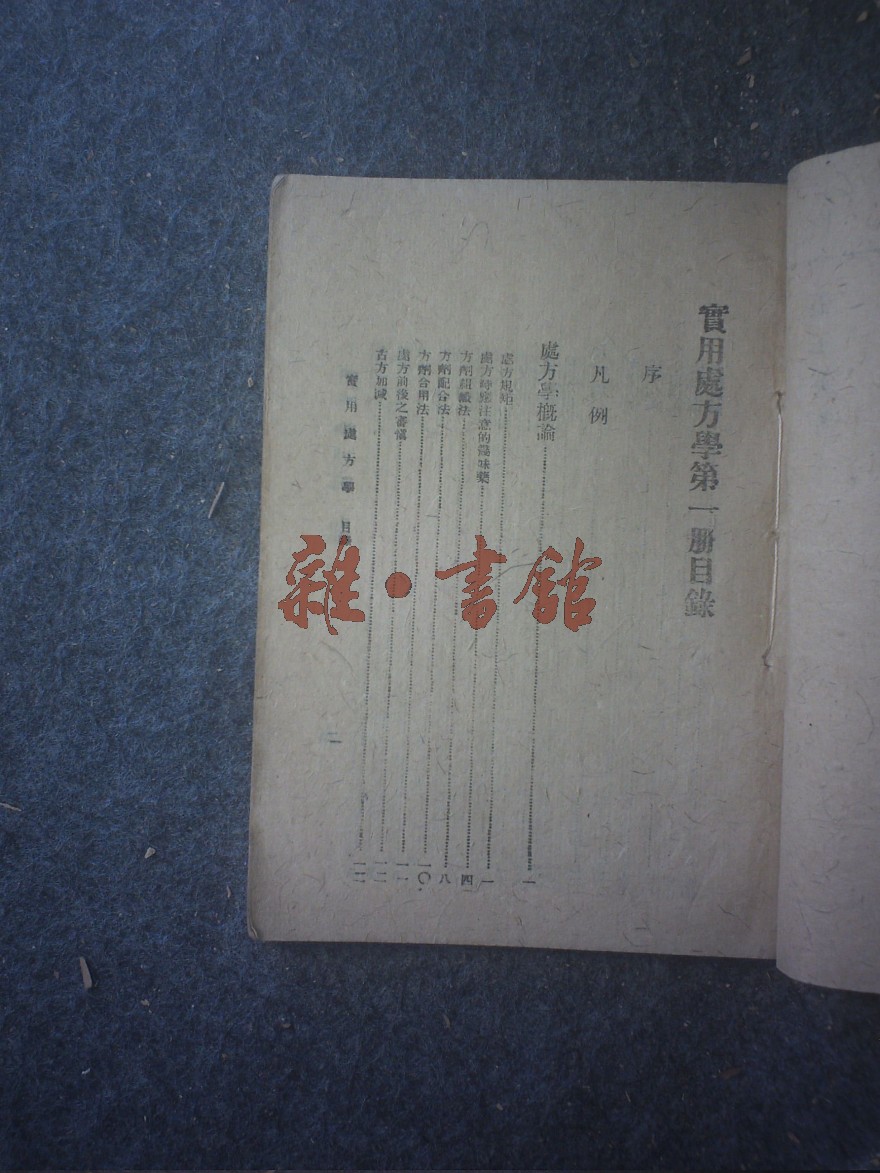 實用處方學第一册目錄
序
凡例
處方學概論……一
處方規矩……一
處方時應注意的幾味藥……四
方劑組織法……八
方劑配合法……一〇
方劑合用法……一一
處方前後之審慎……一二
古方加減……一三
實用處方學 目
一
雜·書館